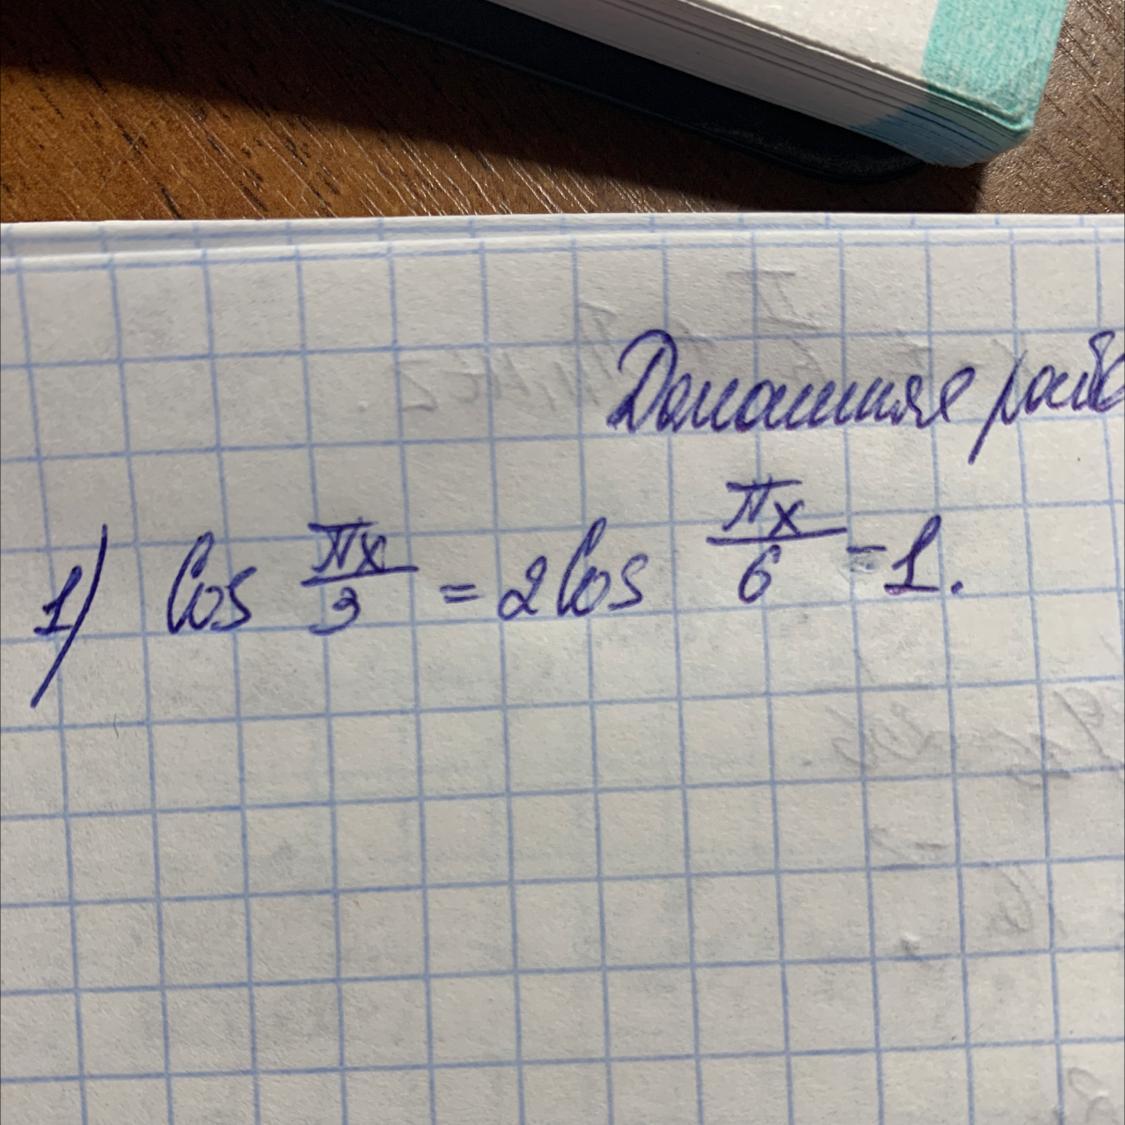 Домашняя рабо
1) Cos πx/3 = 2Cos πx/6 - 1.